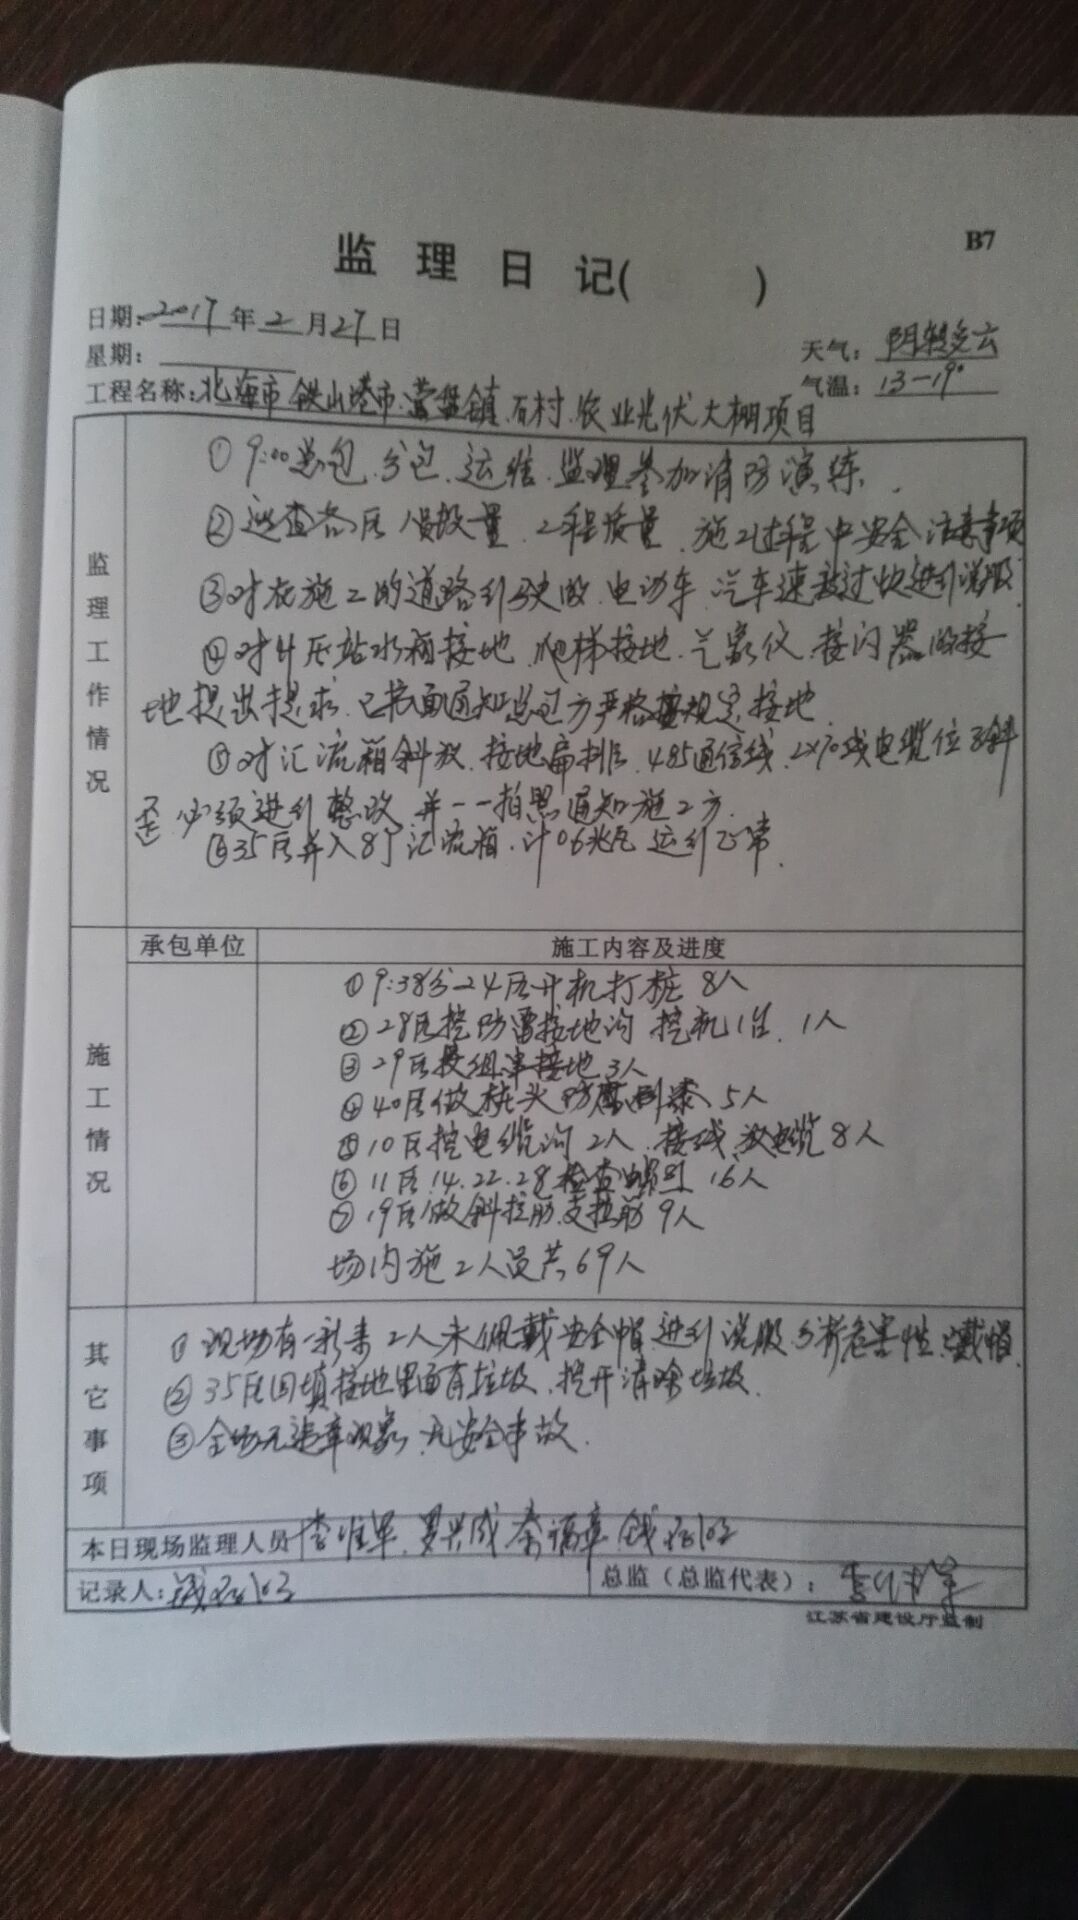 B7
监理日记( )
日期:2017年2月27日
星期:
天气:阴转多云
工程名称:北海市铁山港市.营盘镇.石村.农业光伏大棚项目
气温:13-19°
监理工作情况
①9:00总包.分包.运维.监理参加消防演练.
②巡查各区人员数量.工程质量.施工过程中安全注意事项
③对在施工的道路行驶的.电动车.汽车速度过快进行说服.
④对升压站水箱接地.爬梯接地.气象仪.接闪器的接
地提出提求.已书面通知总包方严格按规定接地.
⑤对汇流箱斜放.接地扁排.485通信线.2×70线电缆位子斜
歪.必须进行整改.并一一拍照通知施工方.
⑥35区并入8个汇流箱.计0.6兆瓦.运行正常.
承包单位 施工内容及进度
施工情况
①9:38分-24区开机打桩 8人
②28区挖防雷接地沟 挖机1台. 1人
③29区接组串接地 3人
④40区做桩头防腐刷漆 5人
⑤10区挖电缆沟2人.接线.放电缆8人
⑥11区.14.22.28检查 16人
⑦19区做斜拉筋.支拉筋 9人
场内施工人员共69人
其它事项
①现场有一新来工人未佩戴安全帽.进行说服.分析危害性.已戴帽.
②35区回填接地里面有垃圾.挖开清除垃圾.
③全场无违章现象.无安全事故.
本日现场监理人员 李 军.罗兴成.秦福章.钱
记录人:钱
总监(总监代表):李 军
江苏省建设厅监制